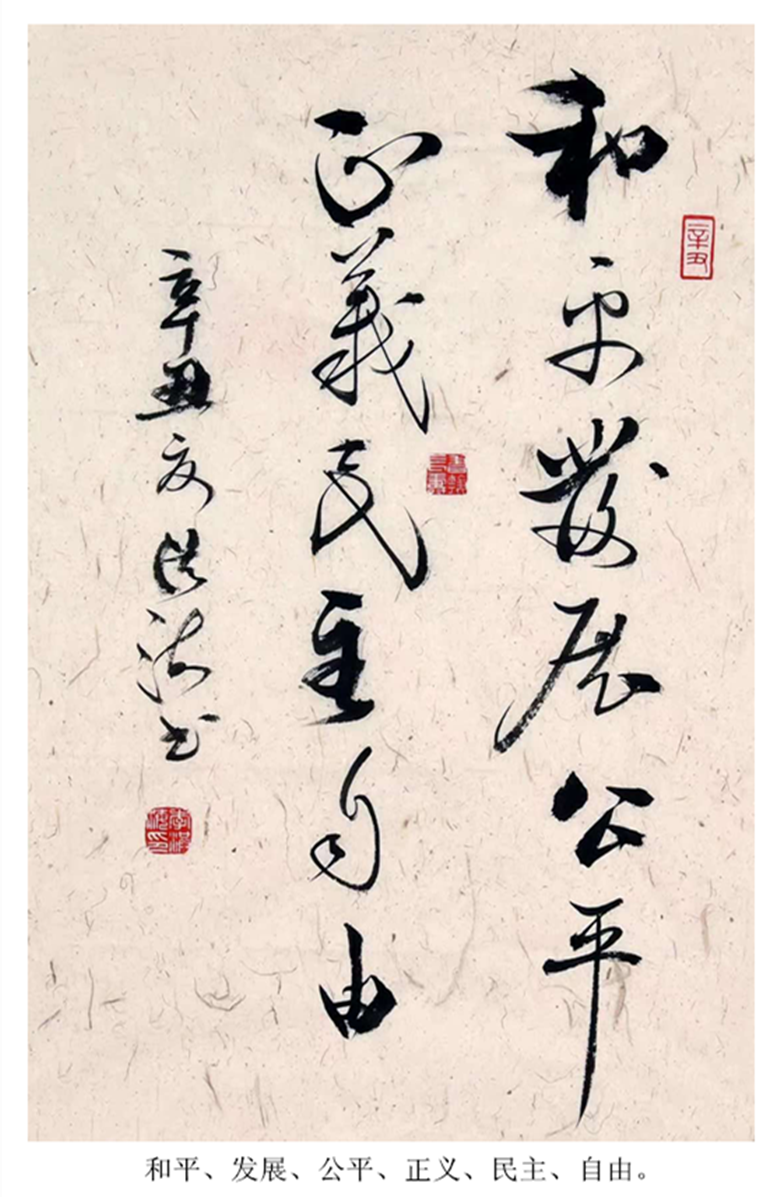 辛丑
和平發展公平
正義民主自由
辛丑夏洪书
和平、发展、公平、正义、民主、自由。